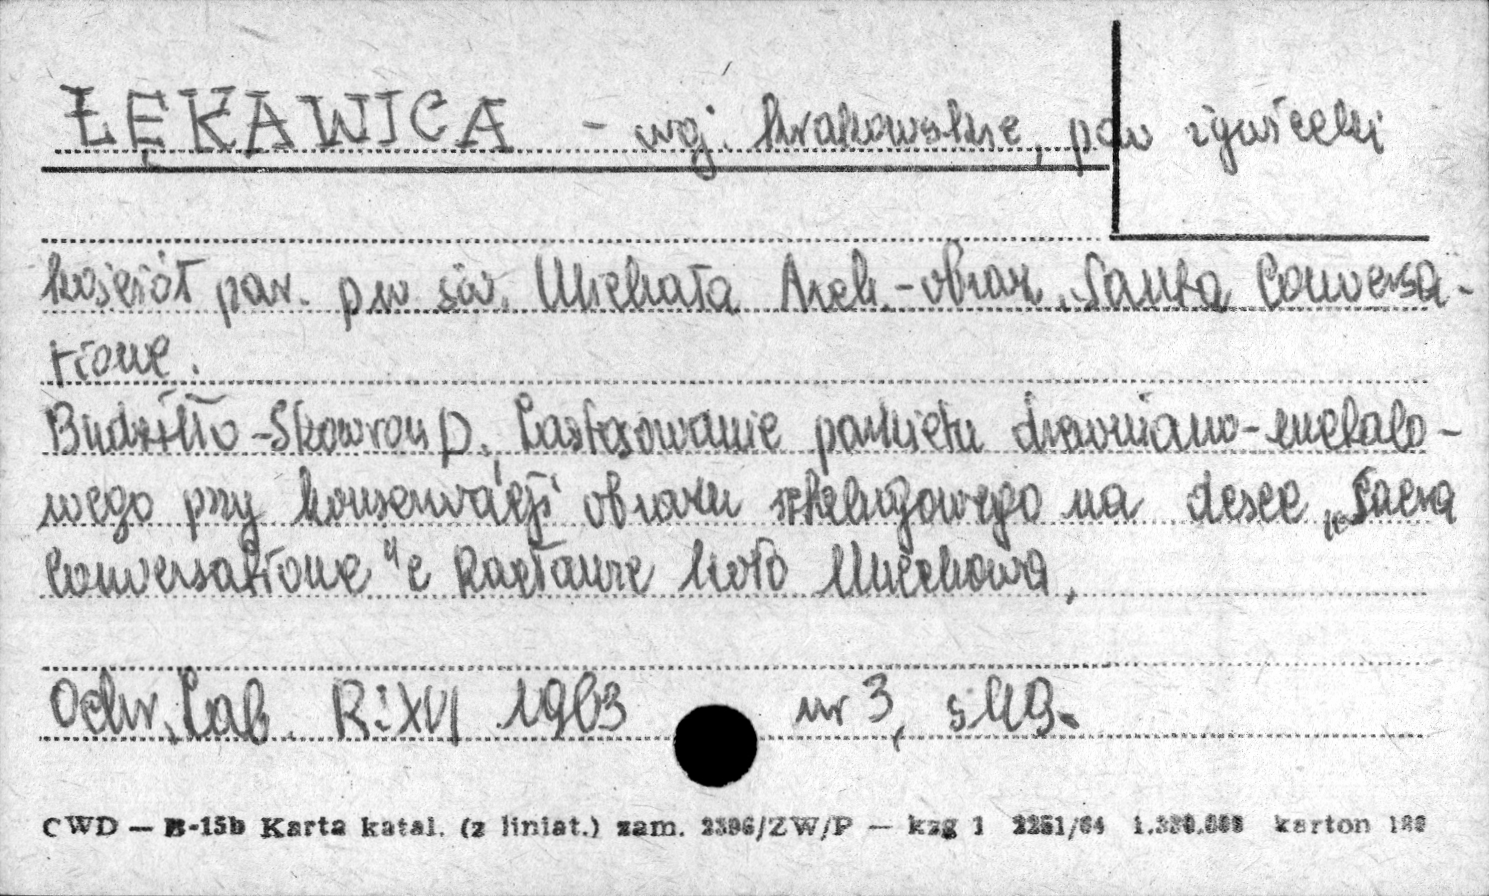 ŁĘKAWICA - woj. krakowskie, pow żywiecki
kościół par. p.w św. Michała Arch. - obraz „Santa Conversa-
tione.
Budziłło-Skowron D., Zastosowanie parkietu drewniano-metalo-
wego przy konserwacji obrazu sztalugowego na desce „Sacra
Conversatione" z Racławic koło Miechowa,
Ochr. Zab. R. XVI 1963 nr 3, s 49.
CWD — B-15b Karta katal. (z liniat.) zam. 2396/ZW/P — kzg 1 2251/64 karton